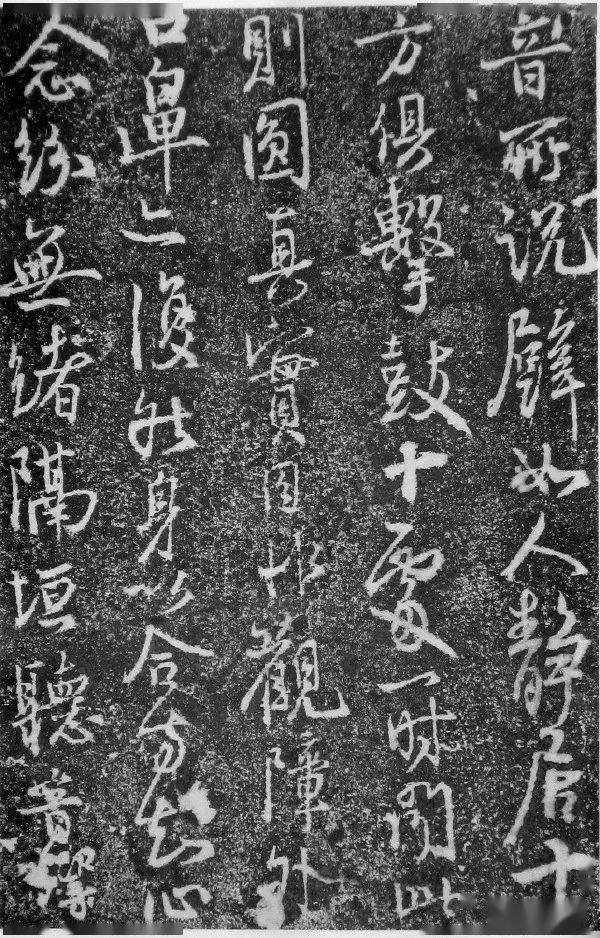 音所說譬如人靜居十
方俱擊鼓十處一時聞此
則圓真實目非觀障外
口鼻亦復然身以合方知心
念紛無緒隔垣聽音響